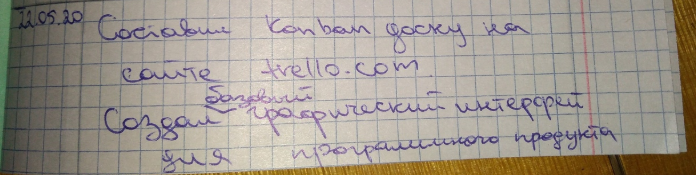 22.05.20 Составил Kanban доску на
сайте trello.com.
базовый
Создал графический интерфейс
для программного продукта